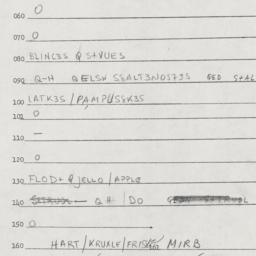 060 O
070 O
080 BLINC3S & STVUES
090 Q-H GELSH SSALT3NOST3S GED
100 LATK3S / PAMPUSSK3S
101 O
110 —
120 O
130 FLOD+ & JELLO / APPLE
140 QH / DO
150 O
160 HART / KRUXLE / MIRB